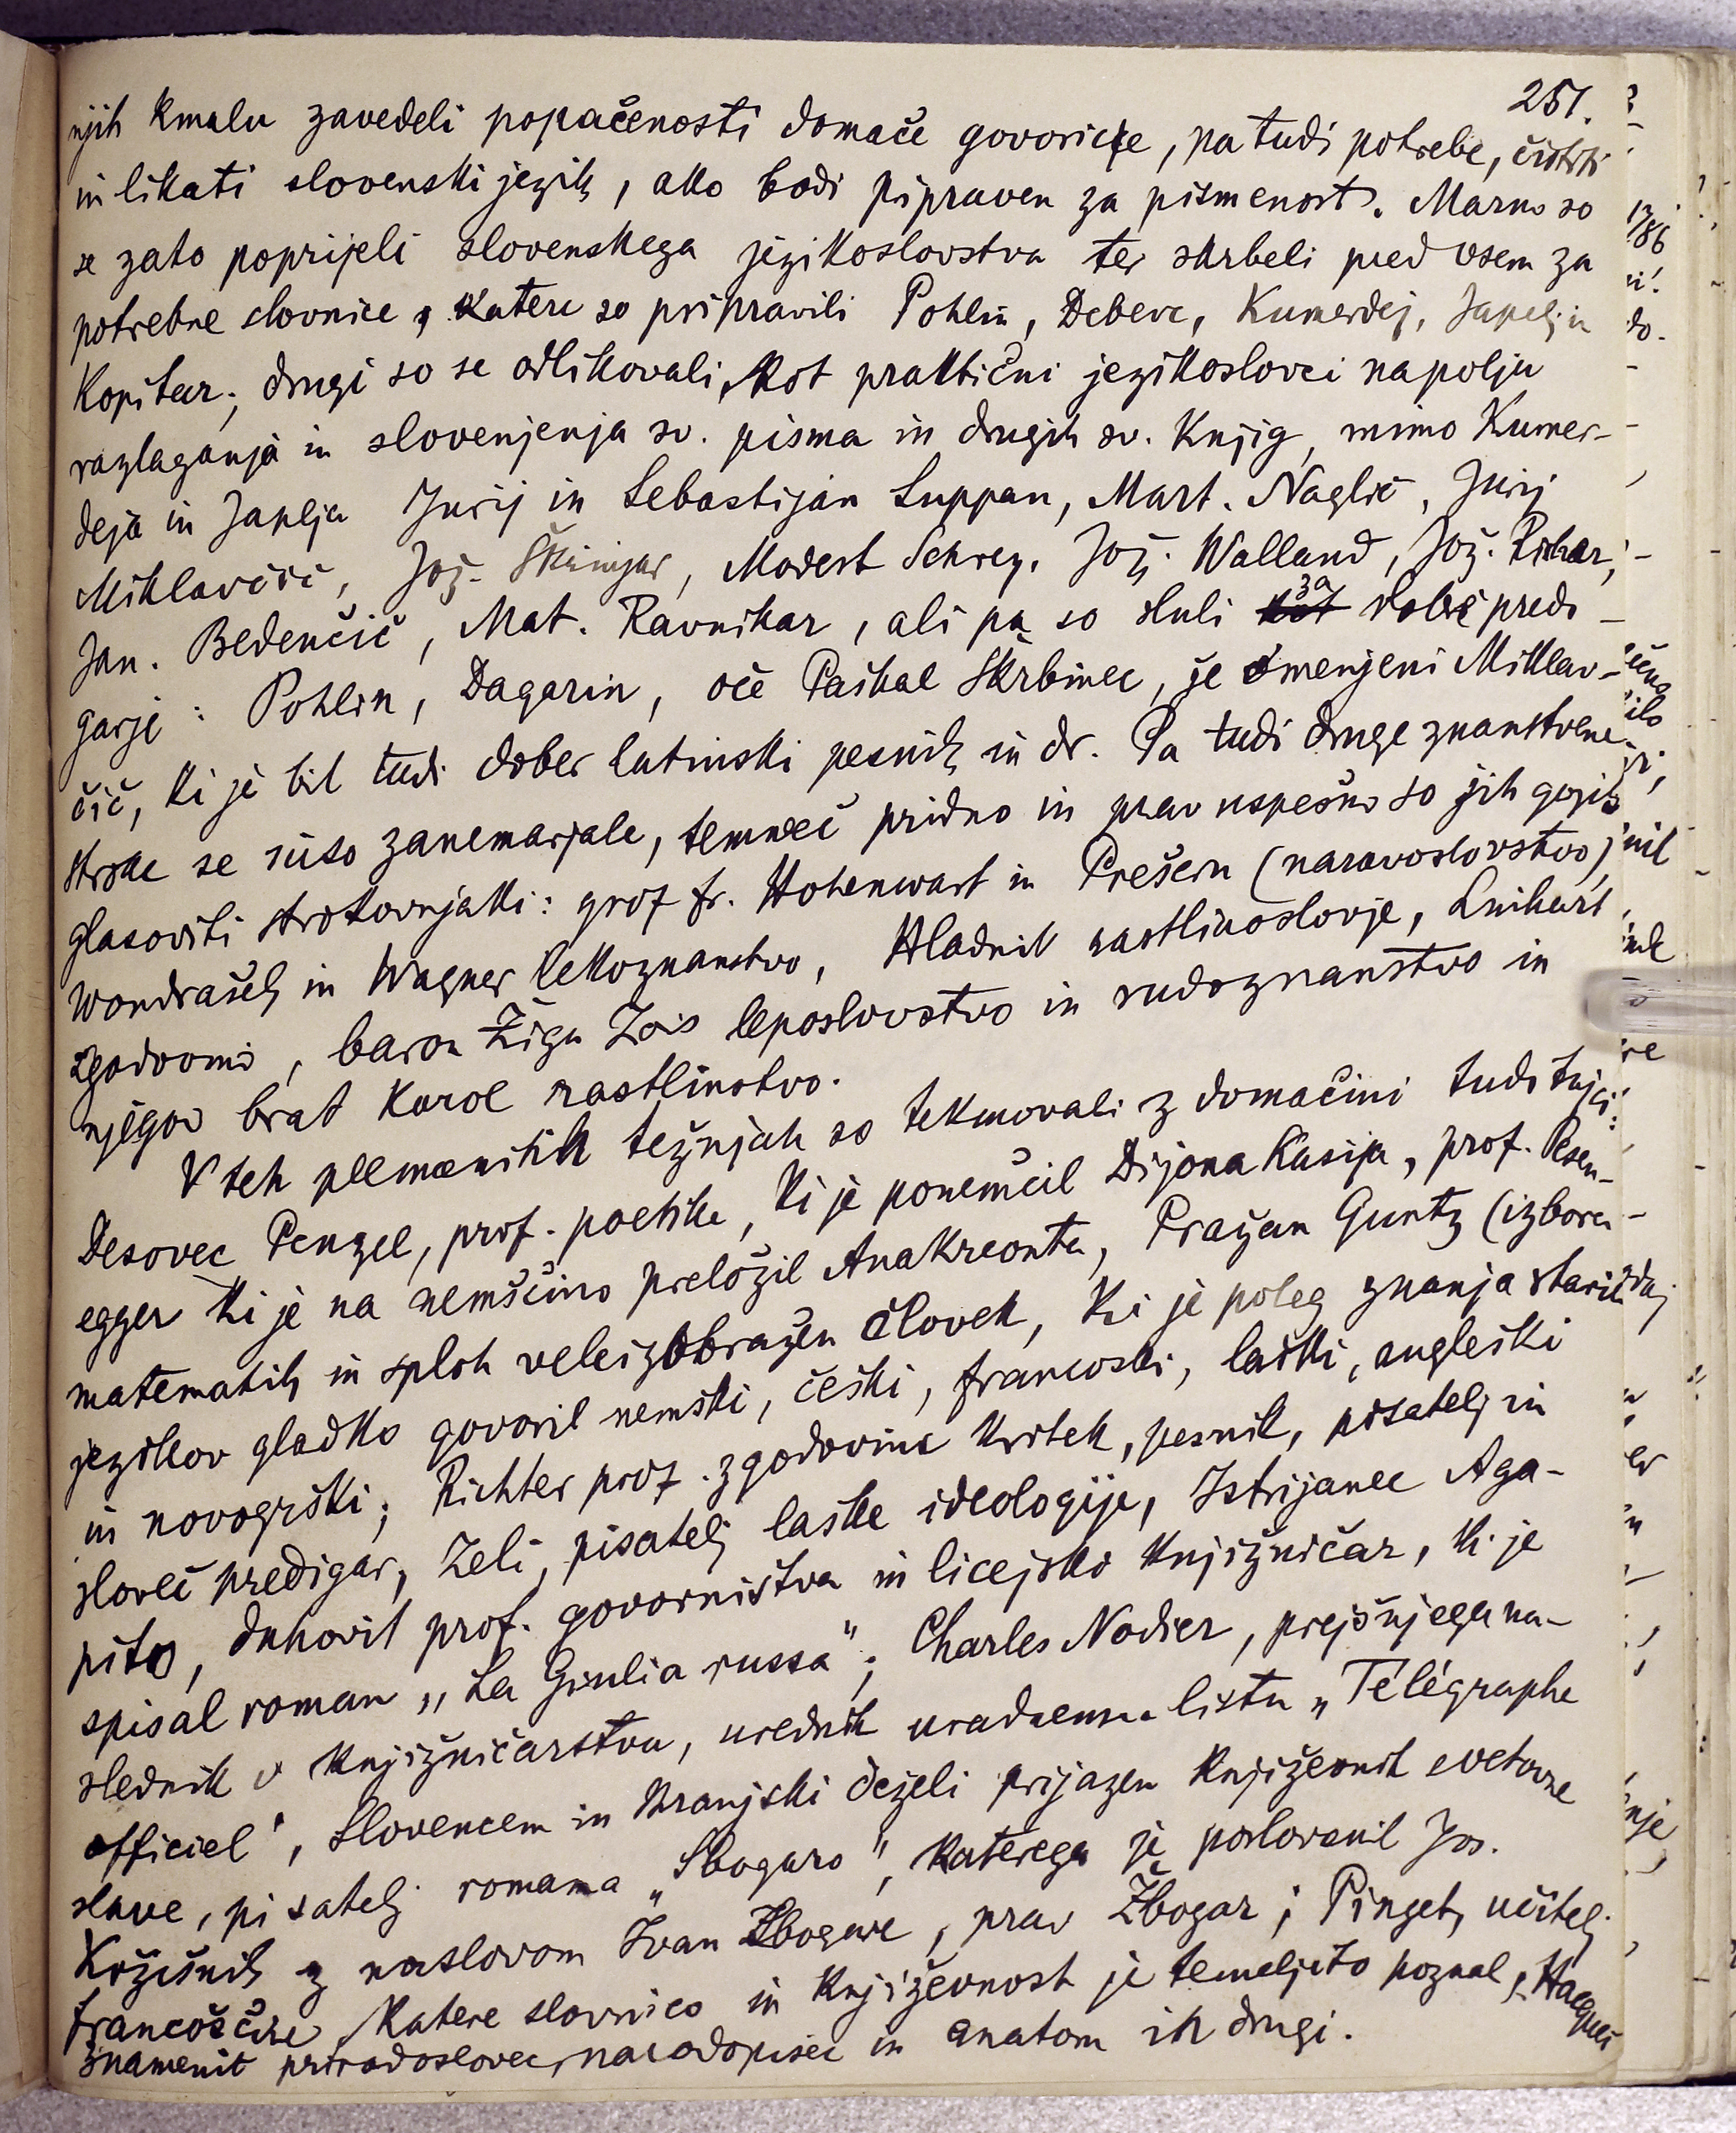 251.
njih kmalu zavedeli popačenosti domače govorice, pa tudi potrebe, čistiti
in likati slovenski jezik, ako bodi pripraven za pismenost. Marno so
se zato poprijeli slovenskega jezikoslovstva ter skrbeli pred vsem za
potrebne slovnice, katere so pripravili Pohlin, Debevc, Kumerdej, Japelj in
Kopitar; drugi so se odlikovali kot praktični jezikoslovci na polju
razlaganja in slovenjenja sv. pisma in drugih sv. knjig, mimo Kumer-
deja in Japlja Jurij in Sebastijan Luppan, Mart. Naglič, Jurij
Miklavčič, Jož. Škrinjar, Modest Schrey, Jož. Walland, Jož. Rihar,
Jan. Bedenčič, Mat. Ravnikar, ali pa so sluli za dobre predi-
garje: Pohlin, Dagarin, oče Paškal Skrbinec, že omenjeni Miklav-
čič, ki je bil tudi dober latinski pesnik in dr. Pa tudi druge znanstvene
stroke se niso zanemarjale, temveč pridno in prav uspešno so jih gojili
glasoviti strokovnjaki: grof Fr. Hohenwart in Prešern (naravoslovstvo),
Wondrašek in Wagner lekoznanstvo, Hladnik rastlinoslovje, Linhart
zgodovino, baron Žiga Zois leposlovstvo in rudoznanstvo in
njegov brat Karol rastlinstvo.
V teh plemenitih težnjah so tekmovali z domačini tudi tujci:
Desovec Penzel, prof. poetike, ki je ponemčil Dijona Kasija, prof. Pesen-
egger ki je na nemščino preložil Anakreonta, Pražan Guntz (izboren
matematik in sploh veleizobražen človek, ki je poleg znanja starih
jezikov gladko govoril nemški, češki, francoski, laški, angleški
in novogrški; Richter prof. zgodovine kritek, pesnik, pisatelj in
sloveč predigar, Zeli, pisatelj laške ideologije, Istrijanec Aga-
pito, duhovit prof. govorništva in licejski knjižničar, ki je
spisal roman „La Giulia russa"; Charles Nodier, prejšnjega na-
slednik v knjižničarstvu, urednik uradnemu listu „Télégraphe
officiel", Slovencem in Kranjski deželi prijazen književnik svetovne
slave, pisatelj romana „Sbogaro", katerega je poslovenil Jos.
Križišnik z naslovom Ivan Zbogare, prav Žbogar; Pinget, učitelj
francoščine, katere slovnico in književnost je temeljito poznal, Hacquet
znamenit prirodoslovec, narodopisec in anatom in drugi.